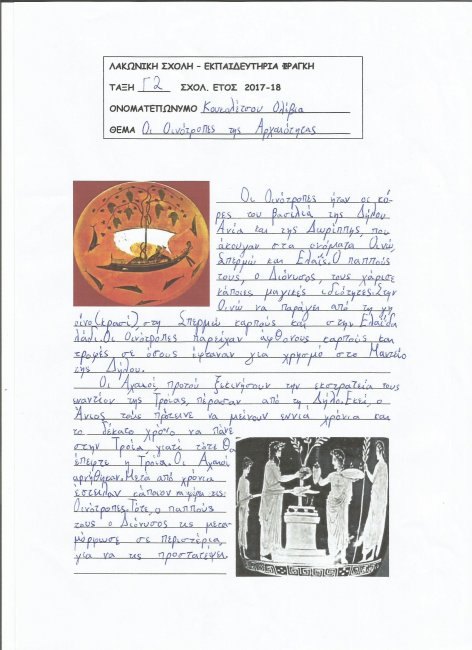 ΛΑΚΩΝΙΚΗ ΣΧΟΛΗ – ΕΚΠΑΙΔΕΥΤΗΡΙΑ ΦΡΑΓΚΗ
ΤΑΞΗ Γ2 ΣΧΟΛ. ΕΤΟΣ 2017-18
ΟΝΟΜΑΤΕΠΩΝΥΜΟ Κουκολέτσου Ολίβια
ΘΕΜΑ Οι Οινότροπες της Αρχαιότητας
Οι Οινότροπες ήταν οι κό-
ρες του βασιλιά της Δήλου
Ανία και της Δωρίππης, που
άκουγαν στα ονόματα Οινώ,
Σπερμώ και Ελαΐς. Ο παππούς
τους, ο Διόνυσος, τους χάρισε
κάποιες μαγικές ιδιότητες. Στην
Οινώ να παράγει από τη γη
οίνο(κρασί), στη Σπερμώ καρπούς και στην Ελαΐδα
λάδι. Οι Οινότροπες παρείχαν άφθονους καρπούς και
τροφές σε όσους έφταναν για χρησμό στο Μαντείο
της Δήλου.
Οι Αχαιοί προτού ξεκινήσουν την εκστρατεία τους
εναντίον της Τροίας, πέρασαν από τη Δήλο. Εκεί, ο
Άνιος τους πρότεινε να μείνουν εννιά χρόνια και
το δέκατο χρόνο να πάνε
στην Τροία, γιατί τότε θα
έπεφτε η Τροία. Οι Αχαιοί
αρνήθηκαν. Μετά από χρόνια
έστειλαν κάποιον να φέρει τις
Οινότροπες. Τότε, ο παππούς
τους ο Διόνυσος τις μετα-
μόρφωσε σε περιστέρια,
για να τις προστατέψει.